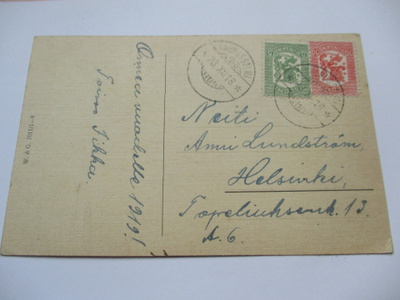 Onnea vuodelle 1919!
Toivo Pihka.
Neiti
Anni Lundström,
Helsinki,
Topeliuksenk. 13.
A. 6.
W. & G.